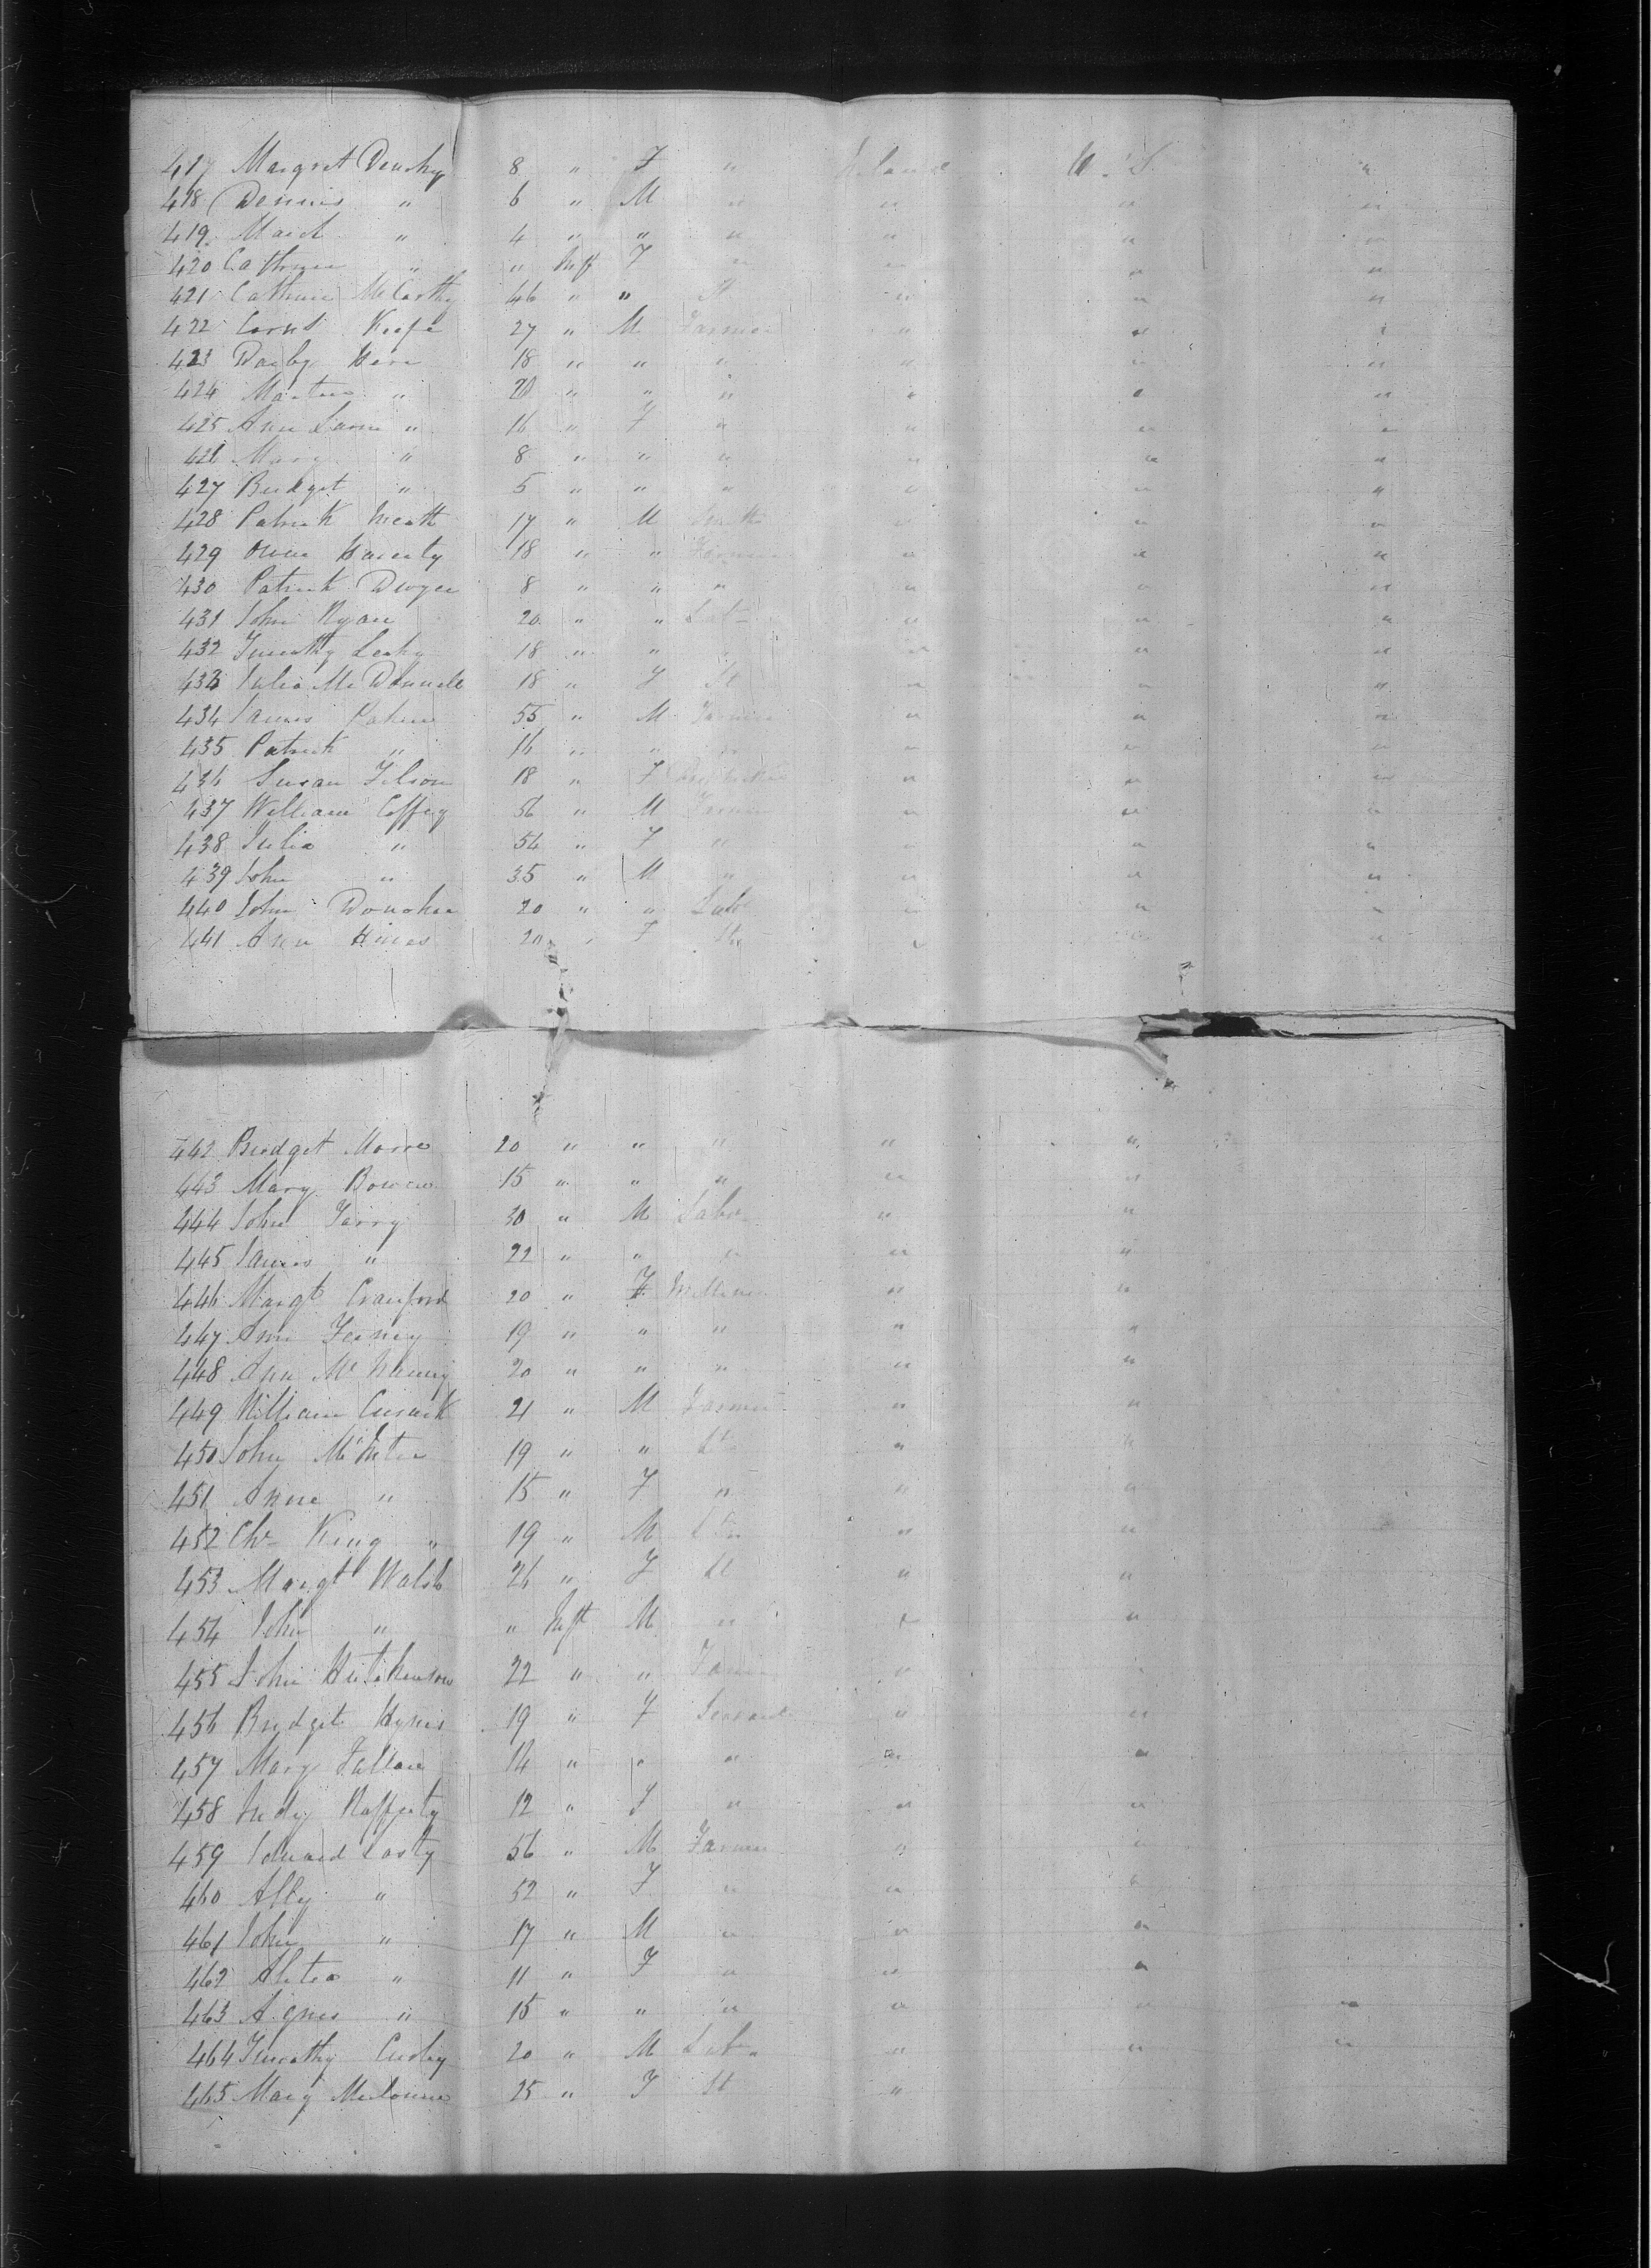 417 Margret Denehy 8 " F " Ireland U.S. "
418 Dennis " 6 " M " " " "
419 " 4 " " " " " "
420 Cathrine " " Inft F " " " "
421 Cathrine McCarthy 46 " " St " " "
422 Corns Keefe 27 " M Farmer " " "
423 Darby Hern 18 " " " " " "
424 Martin " 20 " " " " " "
425 Ann " 16 " F " " " "
426 Mary " 8 " " " " " "
427 Bridget " 5 " " " " " "
428 Patrick Meath 17 " M Smith " " "
429 Owen Haverty 18 " " Farmer " " "
430 Patrick Dwyer 8 " " " " " "
431 John Ryan 20 " " Lab " " "
432 Timothy Leahy 18 " " " " " "
433 Julia McDonnell 18 " F St " " "
434 James 55 " M Farmer " " "
435 Patrick " 16 " " " " " "
436 Susan Filson 18 " F " " "
437 William Coffey 56 " M Farmer " " "
438 Julia " 54 " F " " " "
439 John " 35 " M " " " "
440 John Donohue 20 " " Labr " " "
441 Ann Hines 20 " F St " " "
442 Bridget Moore 20 " " " " "
443 Mary Bowen 15 " " " " "
444 John Farry 30 " M Labr " "
445 James " 22 " " " " "
446 Margt Crauford 20 " F Milliner " "
447 Ann Feeney 19 " " " " "
448 Ann 20 " " " " "
449 William Cusack 21 " M Farmer " "
450 John 19 " " " "
451 Anne " 15 " F " " "
452 Chs King " 19 " M " "
453 Margt Walsh 26 " F St " "
454 John " " Inft M " " "
455 John Hutchinson 22 " " Farmer " "
456 Bridget Hynes 19 " F Servant " "
457 Mary Fallon 14 " " " " "
458 Judy Rafferty 12 " F " " "
459 Edward 56 " M Farmer " "
460 Ally " 52 " F " " "
461 John " 17 " M " " "
462 " 11 " F " " "
463 Agnes " 15 " " " " " "
464 Timothy 20 " M Labr " " "
465 Mary 25 " F St "